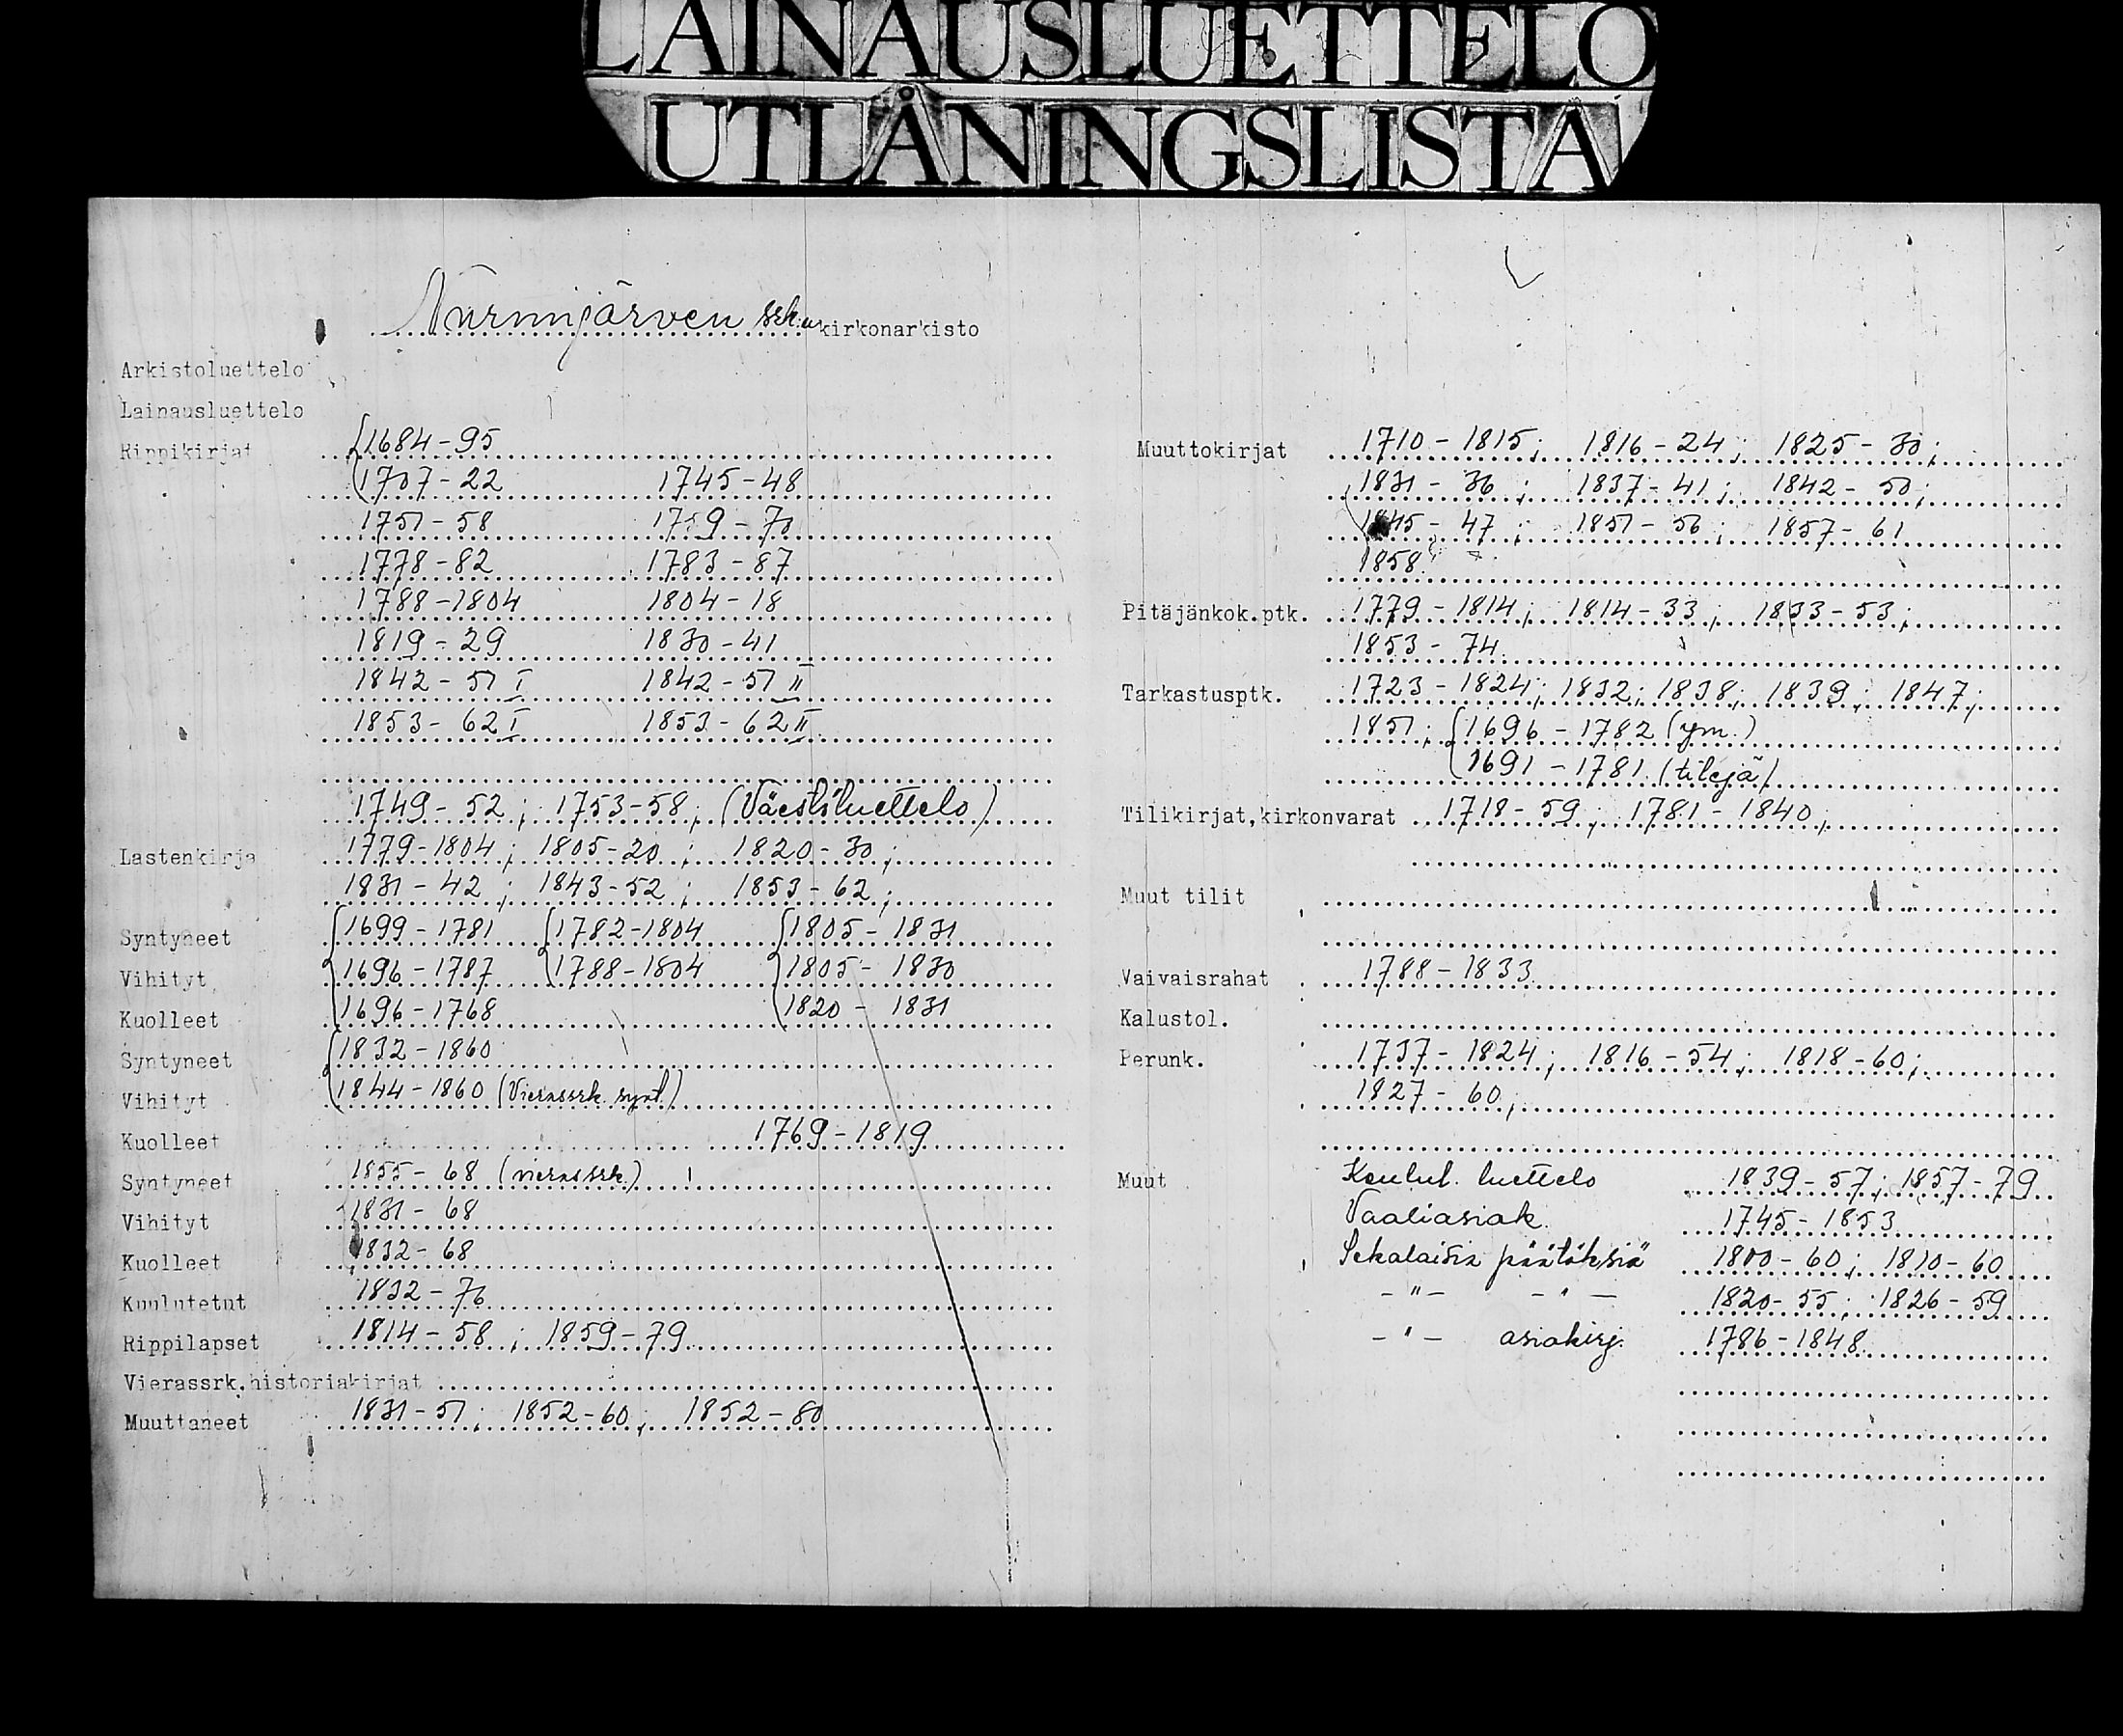 LAINAUSLUETTELO
UTLÅNINGSLISTA
Nurmijärven srk:n kirkonarkisto
Arkistoluettelo
Lainausluettelo
Rippikirjat 1684-95
1707-22 1745-48
1751-58 1759-70
1778-82 1783-87
1788-1804 1804-18
1819-29 1830-41
1842-51 I 1842-51 II
1853-62 I 1853-62 II
1749-52; 1753-58; (Väestöluettelo)
Lastenkirja 1779-1804; 1805-20; 1820-30;
1831-42; 1843-52; 1853-62;
Syntyneet 1699-1781 1782-1804 1805-1831
Vihityt 1696-1787 1788-1804 1805-1830
Kuolleet 1696-1768 1820-1831
Syntyneet 1832-1860
Vihityt 1844-1860 (Vierassrk. synt.)
Kuolleet 1769-1819
Syntyneet 1855-68 (vierassrk.)
Vihityt 1831-68
Kuolleet 1832-68
Kuulutetut 1832-76
Rippilapset 1814-58; 1859-79
Vierassrk.historiakirjat
Muuttaneet 1831-51; 1852-60; 1852-80
Muuttokirjat 1710-1815; 1816-24; 1825-30;
1831-36; 1837-41; 1842-50;
1845-47; 1851-56; 1857-61
1858
Pitäjänkok.ptk. 1779-1814; 1814-33; 1833-53;
1853-74
Tarkastusptk. 1723-1824; 1832; 1838; 1839; 1847;
1851; 1696-1782 (ym.)
1691-1781 (tilejä)
Tilikirjat,kirkonvarat 1718-59; 1781-1840;
Muut tilit
Vaivaisrahat 1788-1833
Kalustol.
Perunk. 1737-1824; 1816-54; 1818-60;
1827-60;
Muut Koulul. luettelo 1839-57; 1857-79
Vaaliasiak. 1745-1853
Sekalaisia päätöksiä 1800-60; 1810-60
-"- -"- 1820-55; 1826-59
-"- asiakirj. 1786-1848